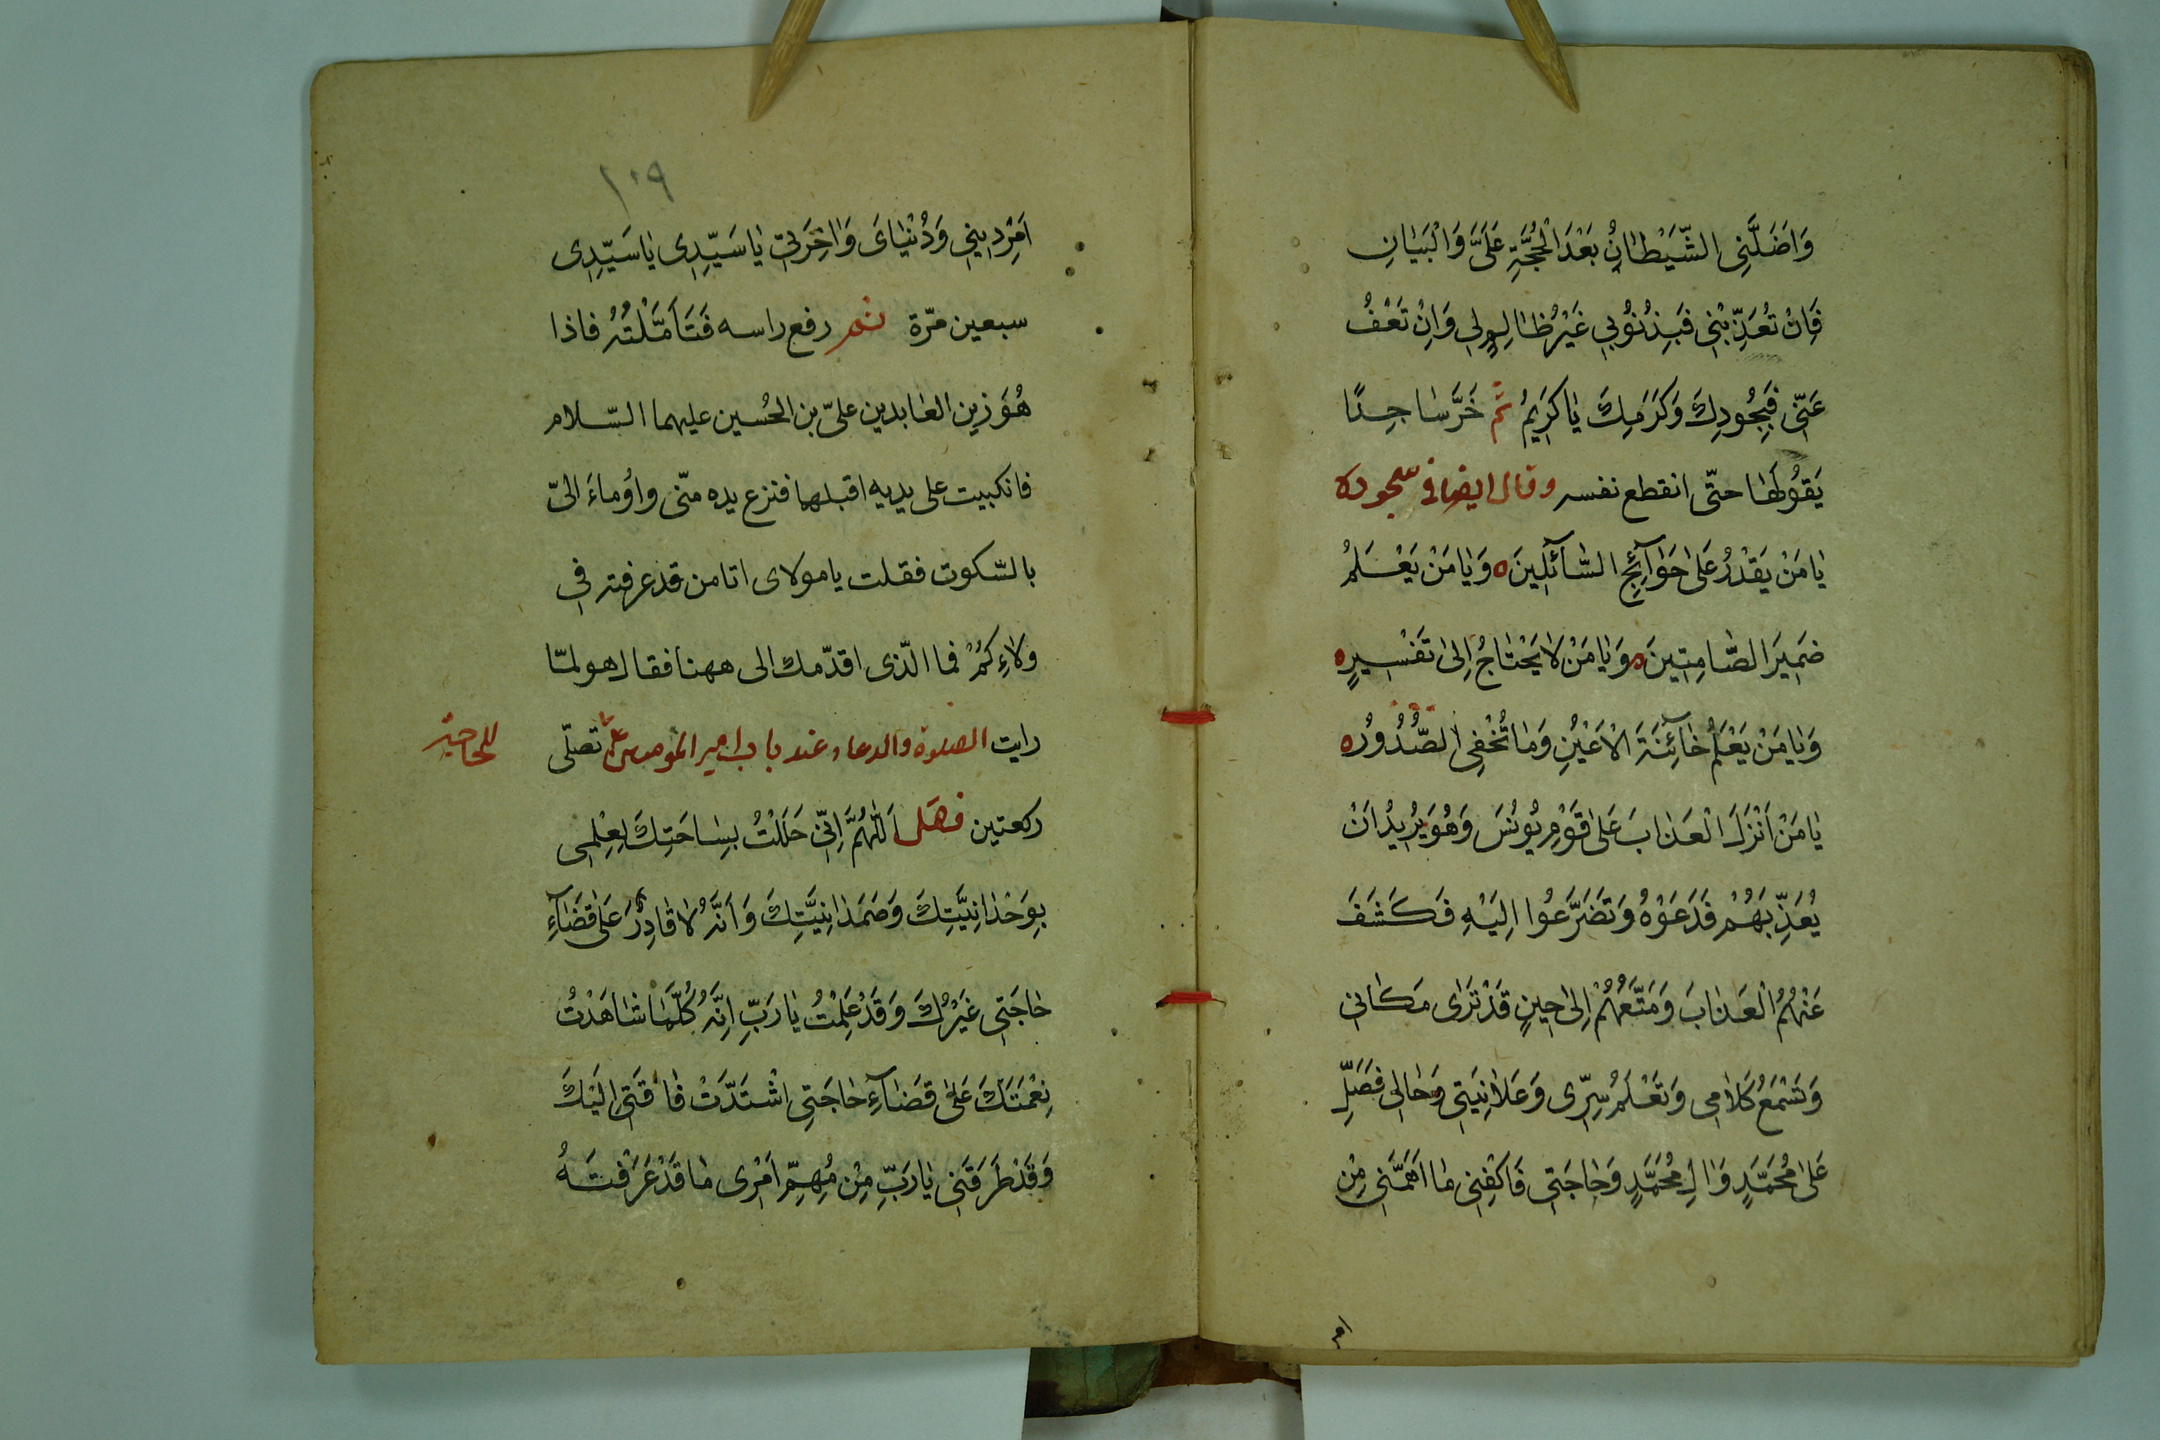 وَاَضَلَّنِى الشَّيْطَانُ بَعْدَ الْحُجَّةِ عَلَىَّ وَالْبَيَانِ
فَاِنْ تُعَذِّبْنِى فَبِذُنُوُبِي غَيْرُ ظَالِمٍ لِى وَاِنْ تَعْفُ
عَنِّى فَبِجُودِكَ وَكَرَمِكَ يٰا كَرِيمُ ثُمَّ خَرَّ سٰاجِدًا
يَقُوُلُهٰا حتّى انقطع نفسه وقال ايضا فى سجوده
يٰا مَنْ يَقْدُرُ عَلىٰ حَوٰآئِجِ السّٰآئِلِينَ ه وَيٰا مَنْ يَعْلَمُ
ضَمِيرَ الصّٰامِتِينَ ه وَيٰا مَنْ لاٰ يَحْتٰاجُ اِلىٰ تَفْسِيرٍ ه
وَيٰا مَنْ يَعْلَمُ خٰآئِنَةَ الْاَعْيُنِ وَمٰا تُخْفِى الصُّدُورُ ه
يٰا مَنْ اَنْزَلَ الْعَذٰابَ عَلىٰ قَوْمِ يُونُسَ وَهُوَ يُرِيدُ اَنْ
يُعَذِّبَهُمْ فَدَعَوْهُ وَتَضَرَّعُوا اِلَيْهِ فَكَشَفَ
عَنْهُمُ الْعَذٰابَ وَمَتَّعَهُمْ اِلىٰ حِينٍ قَدْ تَرٰى مَكٰانِى
وَتَسْمَعُ كَلاٰمِى وَتَعْلَمُ سِرِّى وَعَلاٰنِيَتِى وَحٰالِى فَصَلِّ
عَلىٰ مُحَمَّدٍ وَاٰلِ مُحَمَّدٍ وَحٰاجَتِى فَاكْفِنِى مٰا اَهَمَّنِى مِنْ
امر
١٠٩
اَمْرِ دِينِي وَدُنْيٰاىَ وَاٰخِرَتِي يٰا سَيِّدِى يٰا سَيِّدِى
سبعين مرّة ثم رفع راسه فَتَاَمَّلْتُهُ فاذا
هُوَ زين العٰابدين علىّ بن الحُسين عليهما السّلام
فانكببت على يديه اقبلها فنزع يده منّى واوُماءَ الىّ
بالسّكوت فقلت يا مولاى انا من قد عرفته فى
وَلاٰءِكُمْ فما الّذى اقدمك الى ههنا فقال هو لمّا
رايت الصلوة والدعاء عند باب امير المومنين ع تصلّى
للحاجة
ركعتين فصل اَللّٰهُمَّ اِنِّى حَلَلْتُ بِسٰاحَتِكَ لِعِلْمِى
بِوَحْدٰانِيَّتِكَ وَصَمَدٰانِيَّتِكَ وَاَنَّهُ لاٰ قٰادِرَ عَلىٰ قَضٰآءِ
حٰاجَتِى غَيْرُكَ وَقَدْ عَلِمْتُ يٰا رَبِّ اِنَّهُ كُلَّمٰا شٰاهَدْتُ
نِعْمَتَكَ عَلىٰ قَضٰآءِ حٰاجَتِى اشْتَدَّتْ فٰاقَتِى اِلَيْكَ
وَقَدْ طَرَقَنِى يٰا رَبِّ مِنْ مُهِمِّ اَمْرِى مٰا قَدْ عَرَفْتَهُ